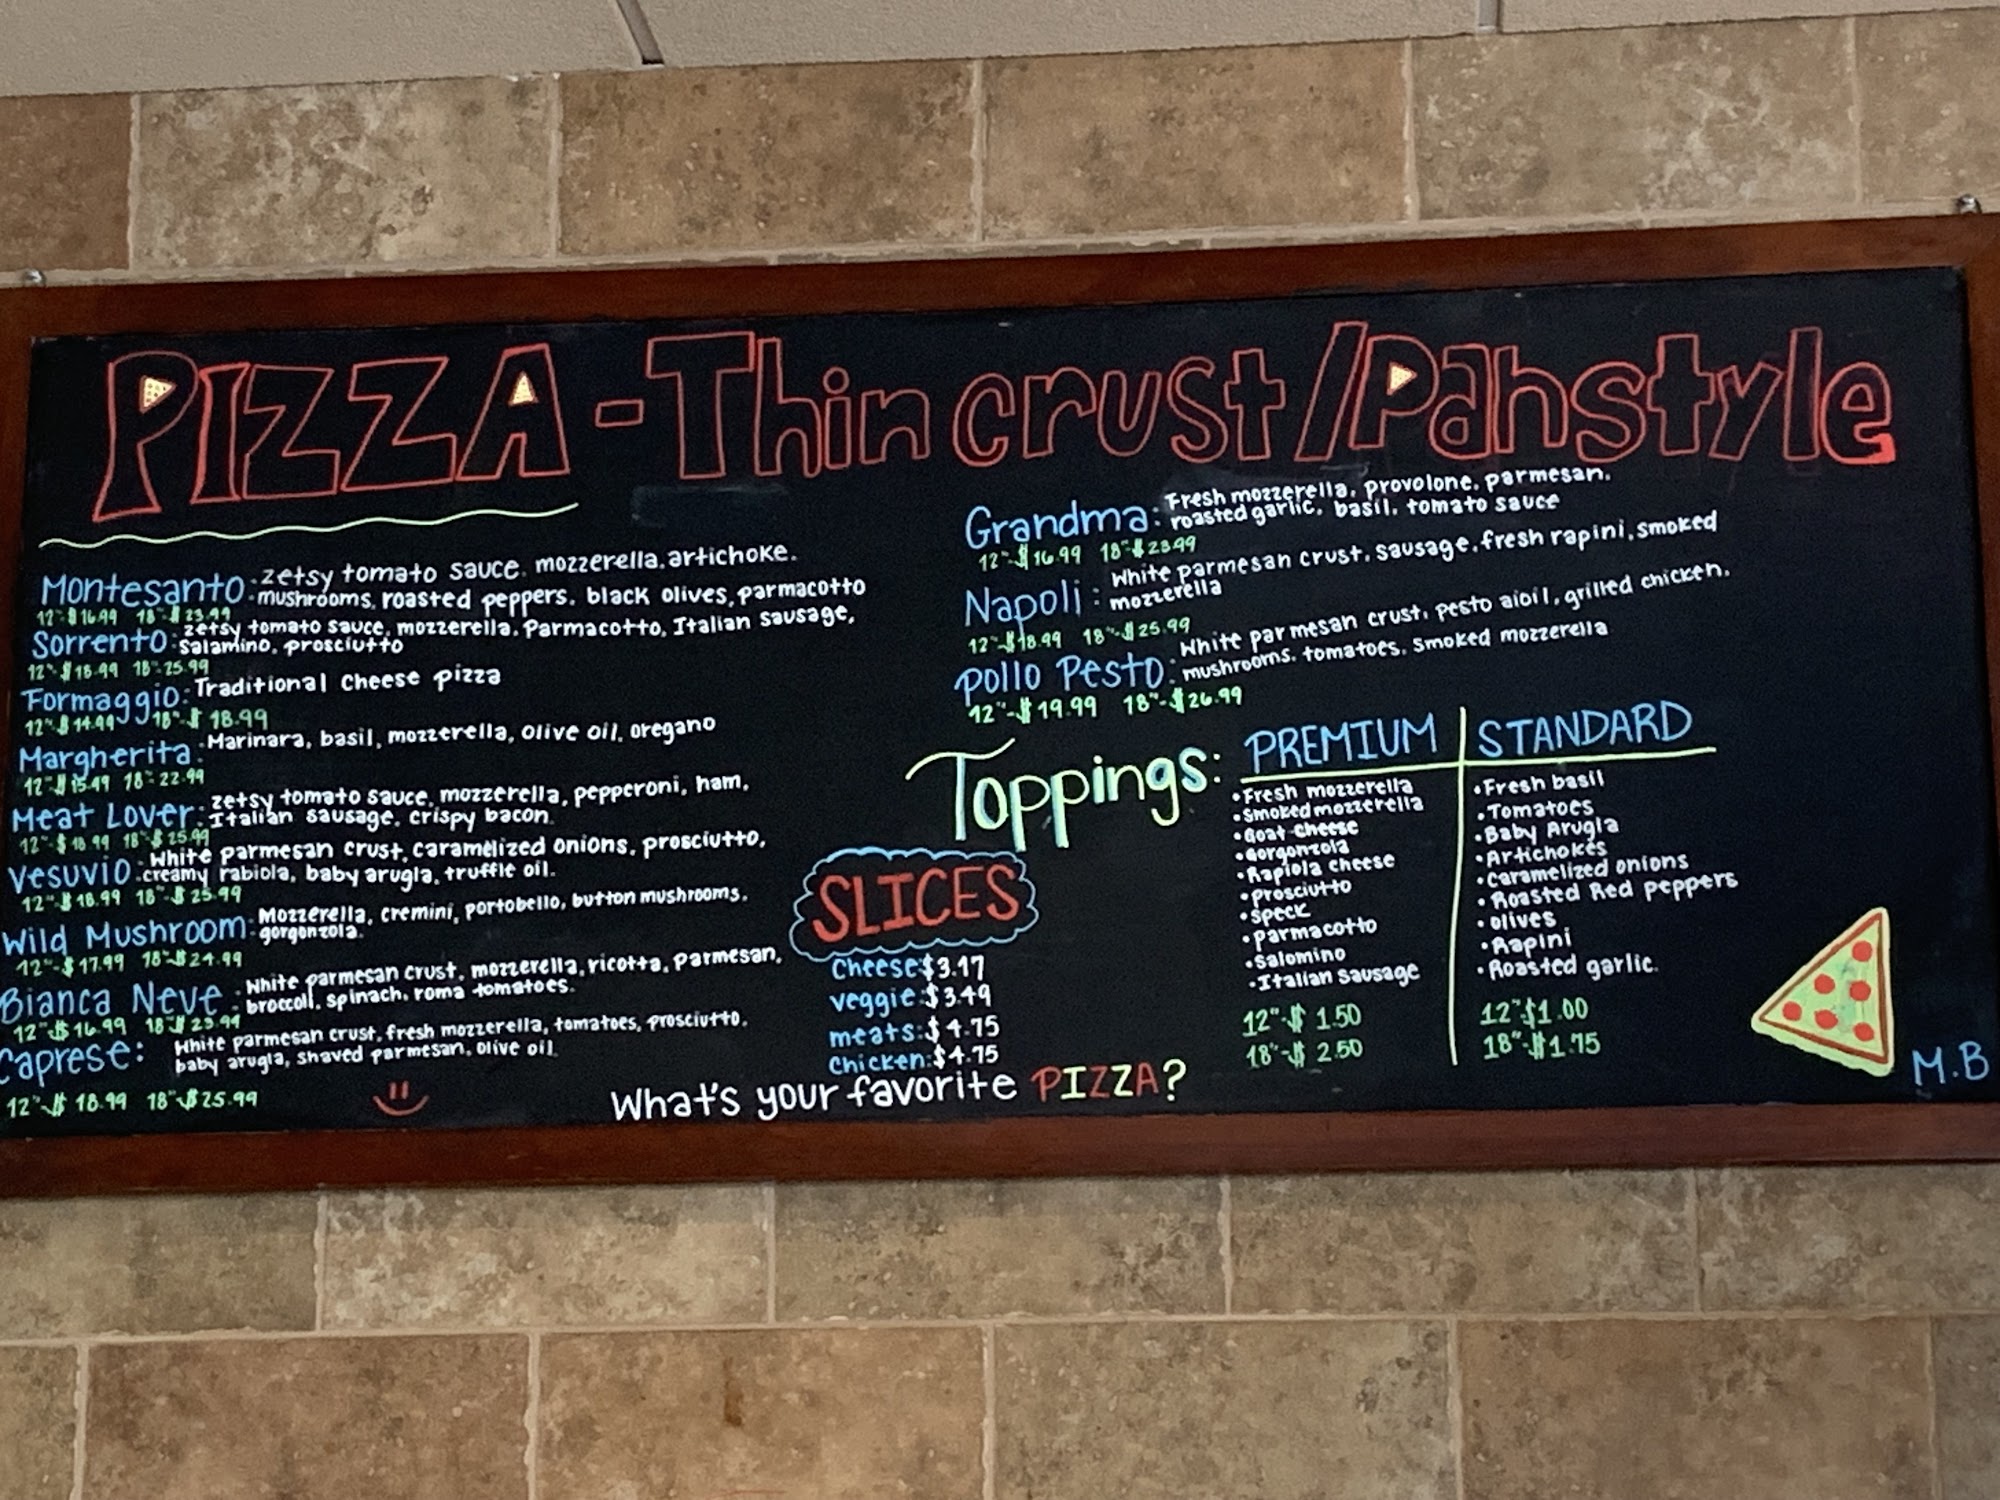 PIZZA - Thin crust/Panstyle
Montesanto: zetsy tomato sauce. mozzerella. artichoke.
mushrooms. roasted peppers. black olives, parmacotto
12"-$16.99 18"-$23.99
Sorrento: zetsy tomato sauce, mozzerella. Parmacotto, Italian sausage,
salamino, prosciutto
12"-$18.99 18"-25.99
Formaggio: Traditional cheese pizza
12"-$14.99 18"-$18.99
Margherita: Marinara, basil, mozzerella, olive oil. oregano
12"-$15.49 18"-22.99
Meat Lover: zetsy tomato sauce, mozzerella, pepperoni, ham,
Italian sausage. crispy bacon
12"-$18.99 18"-$25.99
Vesuvio: White parmesan crust, caramelized onions, prosciutto,
creamy rabiola, baby arugla, truffle oil.
12"-$18.99 18"-$25.99
Wild Mushroom: Mozzerella, cremini, portobello, button mushrooms.
gorgonzola.
12"-$17.99 18"-$24.99
Bianca Neve: White parmesan crust, mozzerella, ricotta, parmesan,
broccoli. spinach, roma tomatoes.
12"-$16.99 18"-$23.99
Caprese: White parmesan crust, fresh mozzerella, tomatoes, prosciutto.
baby arugla, shaved parmesan, olive oil.
12"-$18.99 18"-$25.99
Grandma: Fresh mozzerella, provolone, parmesan.
roasted garlic. basil. tomato sauce
12"-$16.99 18"-$23.99
Napoli: White parmesan crust. sausage. fresh rapini, smoked
mozzerella
12"-$18.99 18"-$25.99
Pollo Pesto: White parmesan crust. pesto aioil, grilled chicken.
mushrooms. tomatoes. smoked mozzerella
12"-$19.99 18"-$26.99
Toppings:
PREMIUM
•Fresh mozzerella
•Smoked mozzerella
•Goat cheese
•Gorgonzola
•Rapiola cheese
•Prosciutto
•Speck
•Parmacotto
•Salomino
•Italian sausage
12"-$1.50
18"-$2.50
STANDARD
•Fresh basil
•Tomatoes
•Baby Arugla
•Artichokes
•Caramelized onions
•Roasted Red peppers
•olives
•Rapini
•Roasted garlic.
12"-$1.00
18"-$1.75
SLICES
Cheese: $3.17
veggie: $3.49
meats: $4.75
chicken: $4.75
What's your favorite PIZZA?
M.B